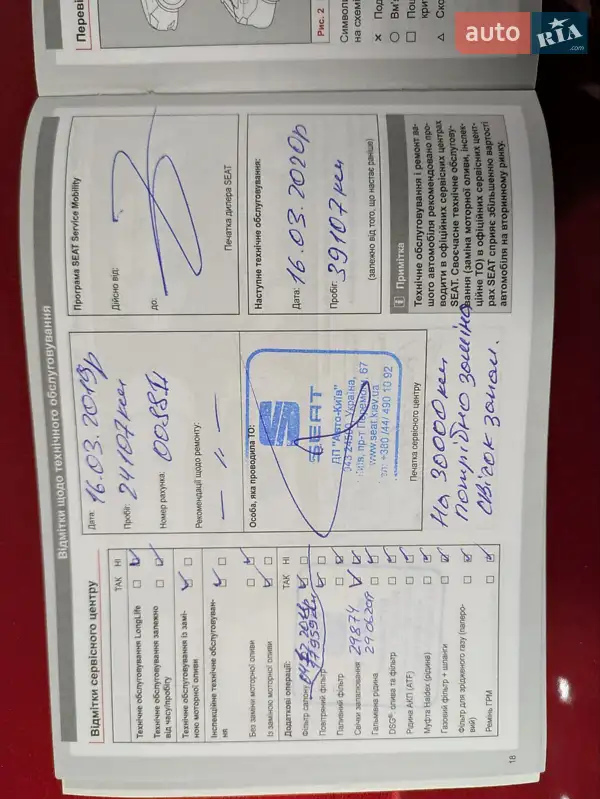 Переві
Рис. 2
Символи
на схемі
× По
○ Вм'
□ Пош
кри
△ Ско
auto RIA.com
Відмітки щодо технічного обслуговування
Відмітки сервісного центру
ТАК НІ
Технічне обслуговування LongLife
Технічне обслуговування залежно
від часу/пробігу
Технічне обслуговування із замі-
ною моторної оливи
Інспекційне технічне обслуговуван-
ня
Без заміни моторної оливи
Із заміною моторної оливи
Додаткові операції: ТАК НІ
Фільтр салону
Повітряний фільтр
Паливний фільтр
Свічки запалювання 29874
Гальмівна рідина 29.06.20р
DSG® олива та фільтр
Рідина АКП (ATF)
Муфта Haldex (рідина)
Газовий фільтр + шланги
Фільтр для зрідженого газу (паперо-
вий)
Ремінь ГРМ
18
Дата: 16.03.2019р
Пробіг: 24107км
Номер рахунка:
Рекомендації щодо ремонту:
— " —
Особа, яка проводила ТО:
SEAT
ДП "Авто-Київ"
Київ, пр-т Перемоги, 67
www.seat.kiev.ua
тел: +380 /44/ 490 10 92
Печатка сервісного центру
На 30000 км
потрібно заміна
свічок запал.
Програма SEAT Service Mobility
Дійсно від:
до:
Печатка дилера SEAT
Наступне технічне обслуговування:
Дата: 16.03.2020р
Пробіг: 39107км
(залежно від того, що настає раніше)
i Примітка
Технічне обслуговування і ремонт ва-
шого автомобіля рекомендовано про-
водити в офіційних сервісних центрах
SEAT. Своєчасне технічне обслугову-
вання (заміна моторної оливи, інспек-
ційне ТО) в офіційних сервісних цент-
рах SEAT сприяє збільшенню вартості
автомобіля на вторинному ринку.